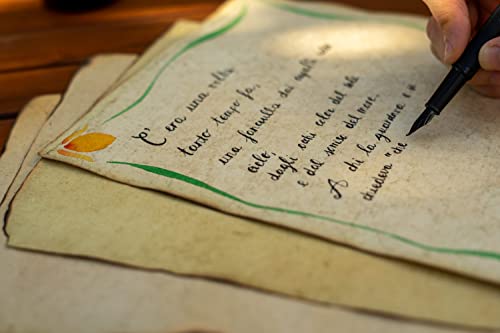 C'era una volta
tanto tempo fa,
una fanciulla dai capelli
cielo, dagli occhi color del sole
e dal sorriso del mare.
A chi la guardava e si
chiedeva "che